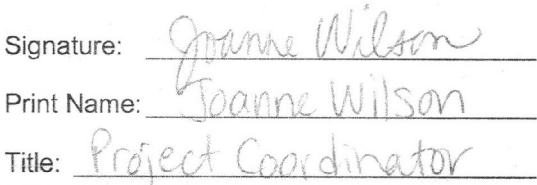 Signature: Joanne Wilson
Print Name: Joanne Wilson
Title: Project Coordinator